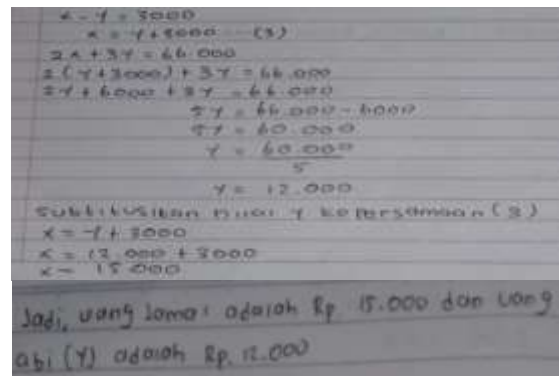 x - y = 3000
x = y + 3000 ... (3)
2x + 3y = 66.000
2(y + 3000) + 3y = 66.000
2y + 6000 + 3y = 66.000
5y = 66.000 - 6000
5y = 60.000
y = 60.000
5
y = 12.000
Subtitusikan nilai y ke persamaan (3)
x = y + 3000
x = 12.000 + 3000
x = 15.000
Jadi, uang Jamai adalah Rp 15.000 dan uang
abi (y) adalah Rp. 12.000